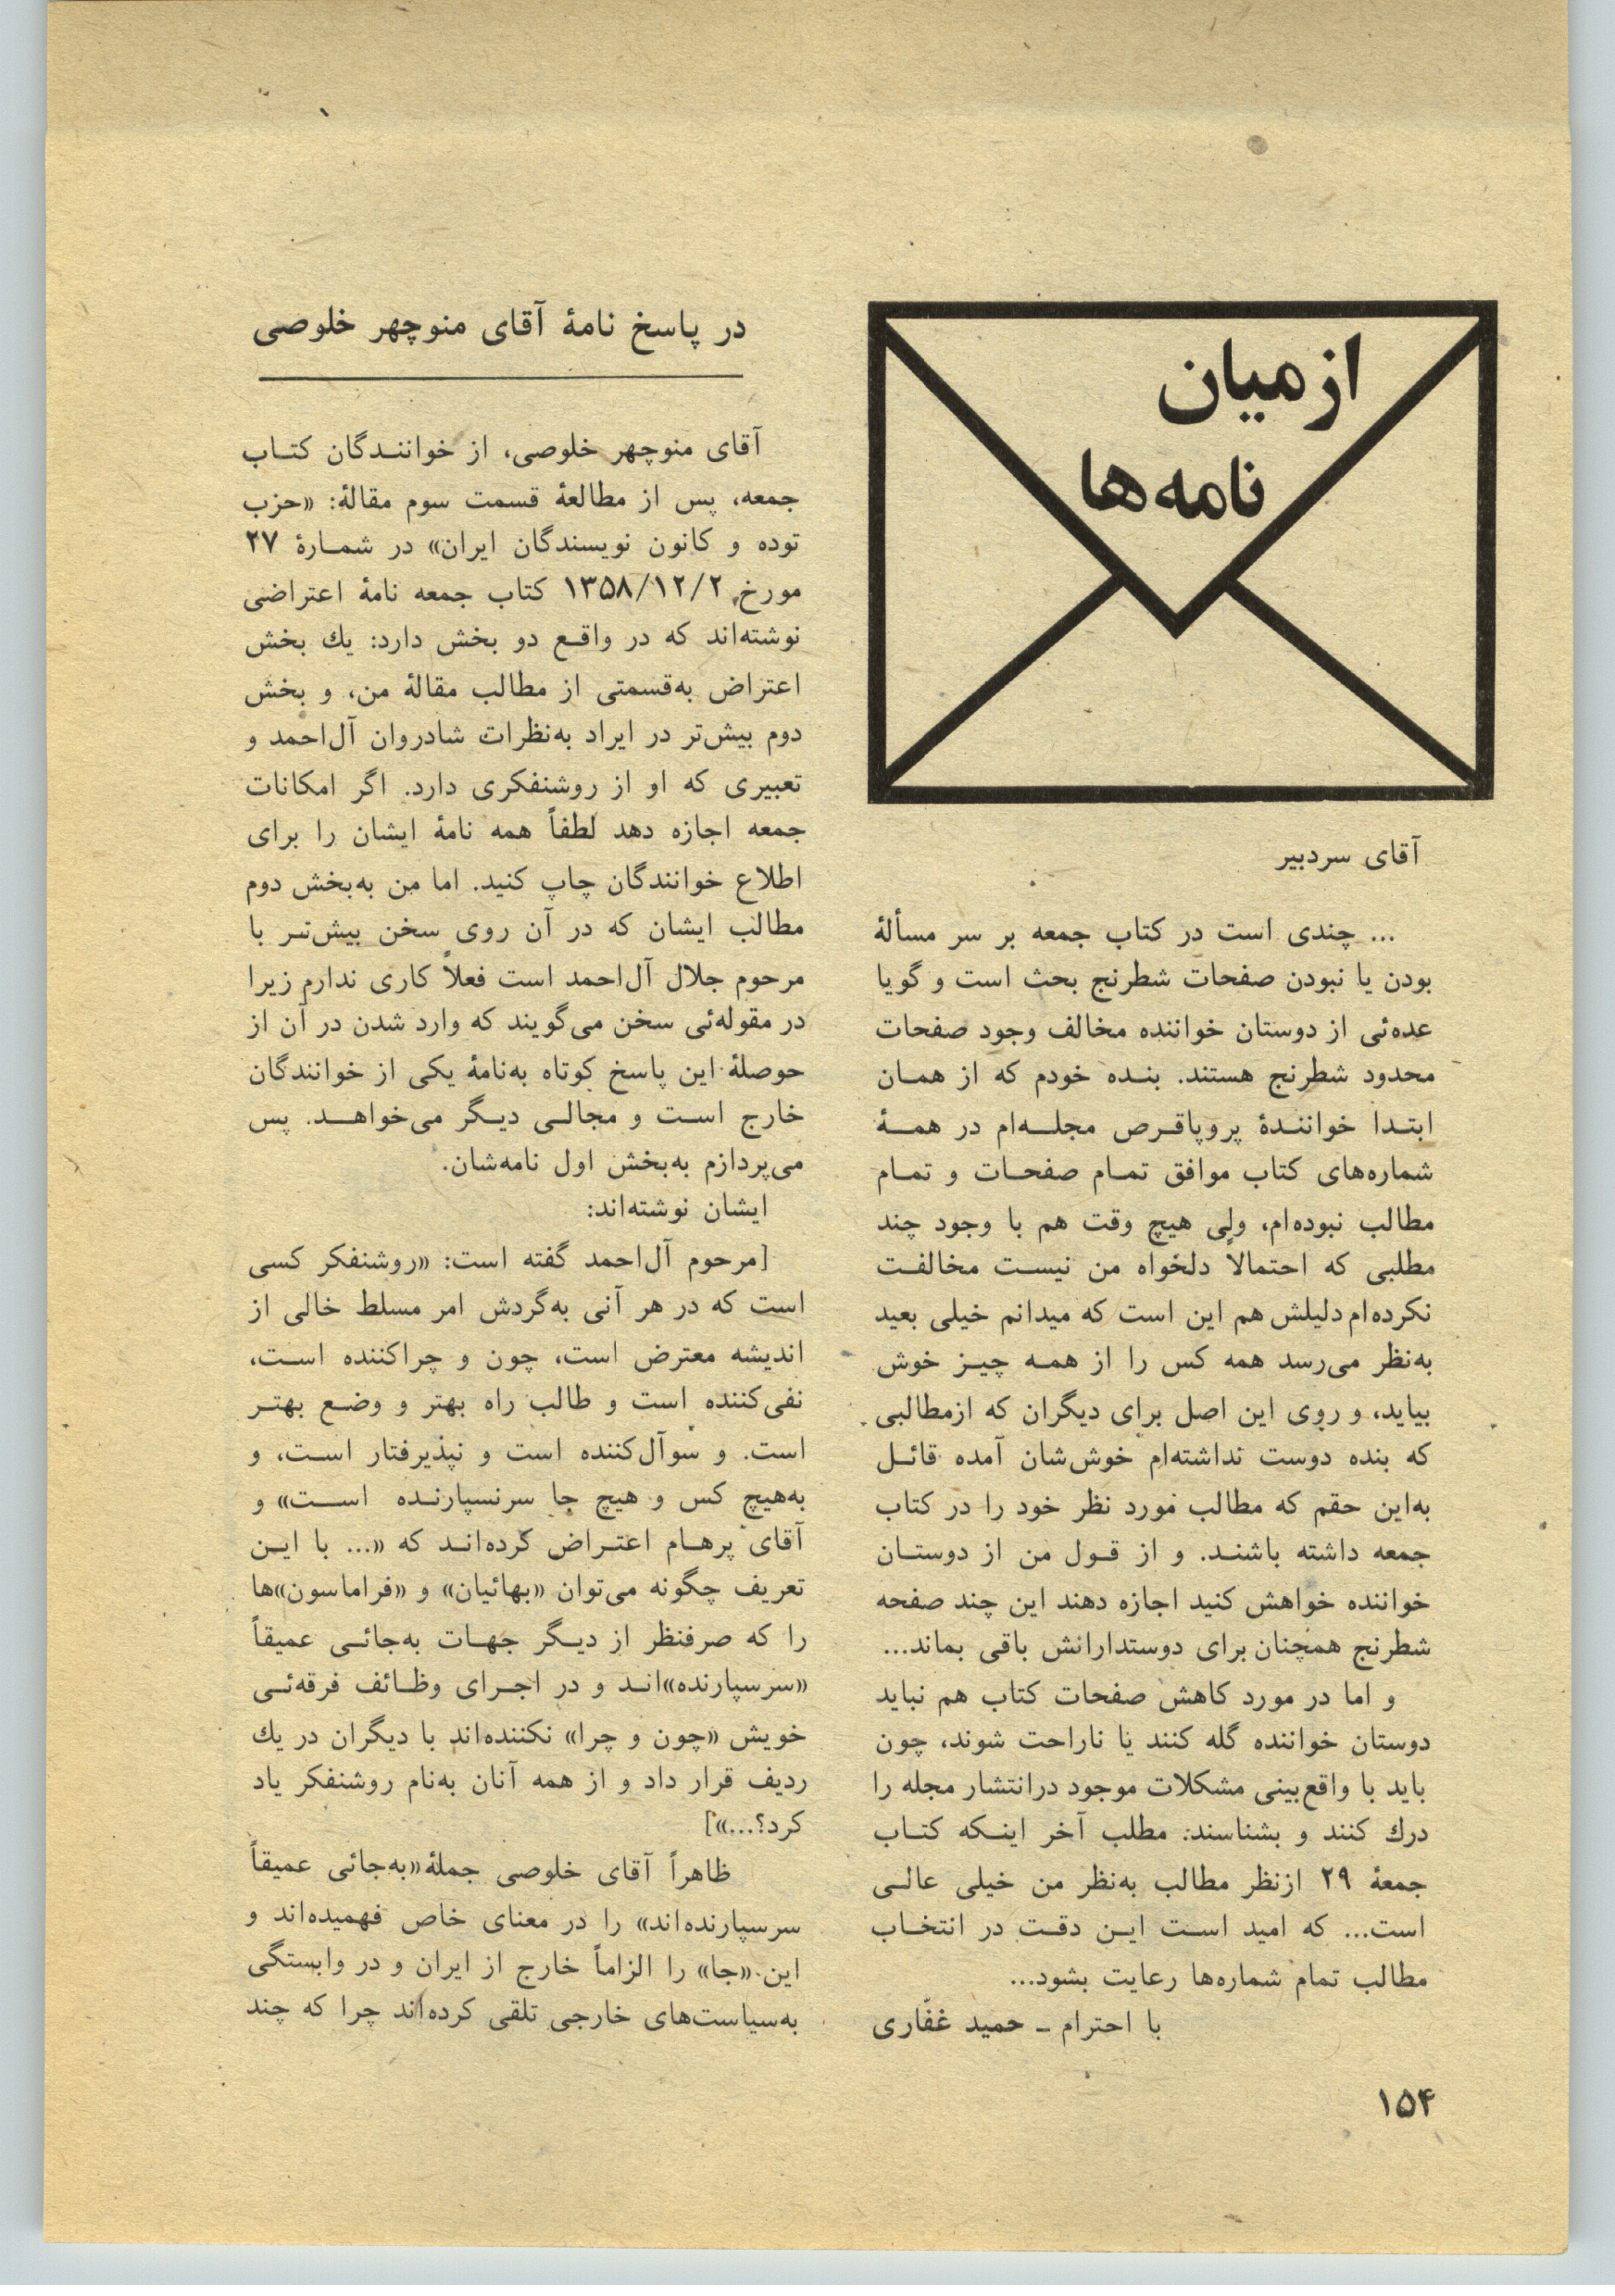 از میان
نامه‌ها
آقای سردبیر
... چندی است در کتاب جمعه بر سر مسألهٔ
بودن یا نبودن صفحات شطرنج بحث است و گویا
عده‌ئی از دوستان خواننده مخالف وجود صفحات
محدود شطرنج هستند. بنده خودم که از همان
ابتدا خوانندهٔ پروپاقرص مجله‌ام در همهٔ
شماره‌های کتاب موافق تمام صفحات و تمام
مطالب نبوده‌ام، ولی هیچ وقت هم با وجود چند
مطلبی که احتمالاً دلخواه من نیست مخالفت
نکرده‌ام دلیلش هم این است که میدانم خیلی بعید
به‌نظر می‌رسد همه کس را از همه چیز خوش
بیاید، و روی این اصل برای دیگران که ازمطالبی
که بنده دوست نداشته‌ام خوش‌شان آمده قائل
به‌این حقم که مطالب مورد نظر خود را در کتاب
جمعه داشته باشند. و از قول من از دوستان
خواننده خواهش کنید اجازه دهند این چند صفحه
شطرنج همچنان برای دوستدارانش باقی بماند...
و اما در مورد کاهش صفحات کتاب هم نباید
دوستان خواننده گله کنند یا ناراحت شوند، چون
باید با واقع‌بینی مشکلات موجود درانتشار مجله را
درك کنند و بشناسند. مطلب آخر اینکه کتاب
جمعهٔ ۲۹ ازنظر مطالب به‌نظر من خیلی عالی
است... که امید است این دقت در انتخاب
مطالب تمام شماره‌ها رعایت بشود...
با احترام ـ حمید غفّاری
در پاسخ نامهٔ آقای منوچهر خلوصی
آقای منوچهر خلوصی، از خوانندگان کتاب
جمعه، پس از مطالعهٔ قسمت سوم مقالهٔ: «حزب
توده و کانون نویسندگان ایران» در شمارهٔ ۲۷
مورخ ۱۳۵۸/۱۲/۲ کتاب جمعه نامهٔ اعتراضی
نوشته‌اند که در واقع دو بخش دارد: یك بخش
اعتراض به‌قسمتی از مطالب مقالهٔ من، و بخش
دوم بیش‌تر در ایراد به‌نظرات شادروان آل‌احمد و
تعبیری که او از روشنفکری دارد. اگر امکانات
جمعه اجازه دهد لطفاً همه نامهٔ ایشان را برای
اطلاع خوانندگان چاپ کنید. اما من به‌بخش دوم
مطالب ایشان که در آن روی سخن بیش‌تر با
مرحوم جلال آل‌احمد است فعلاً کاری ندارم زیرا
در مقوله‌ئی سخن می‌گویند که وارد شدن در آن از
حوصلهٔ این پاسخ کوتاه به‌نامهٔ یکی از خوانندگان
خارج است و مجالی دیگر می‌خواهد. پس
می‌پردازم به‌بخش اول نامه‌شان.
ایشان نوشته‌اند:
[مرحوم آل‌احمد گفته است: «روشنفکر کسی
است که در هر آنی به‌گردش امر مسلط خالی از
اندیشه معترض است، چون و چراکننده است،
نفی‌کننده است و طالب راه بهتر و وضع بهتر
است. و سوآل‌کننده است و نپذیرفتار است، و
به‌هیچ کس و هیچ جا سرنسپارنده است» و
آقای پرهام اعتراض کرده‌اند که «... با این
تعریف چگونه می‌توان «بهائیان» و «فراماسون»ها
را که صرفنظر از دیگر جهات به‌جائی عمیقاً
«سرسپارنده»اند و در اجرای وظائف فرقه‌ئی
خویش «چون و چرا» نکننده‌اند با دیگران در یك
ردیف قرار داد و از همه آنان به‌نام روشنفکر یاد
کرد؟...»]
ظاهراً آقای خلوصی جملهٔ «به‌جائی عمیقاً
سرسپارنده‌اند» را در معنای خاص فهمیده‌اند و
این «جا» را الزاماً خارج از ایران و در وابستگی
به‌سیاست‌های خارجی تلقی کرده‌اند چرا که چند
۱۵۴